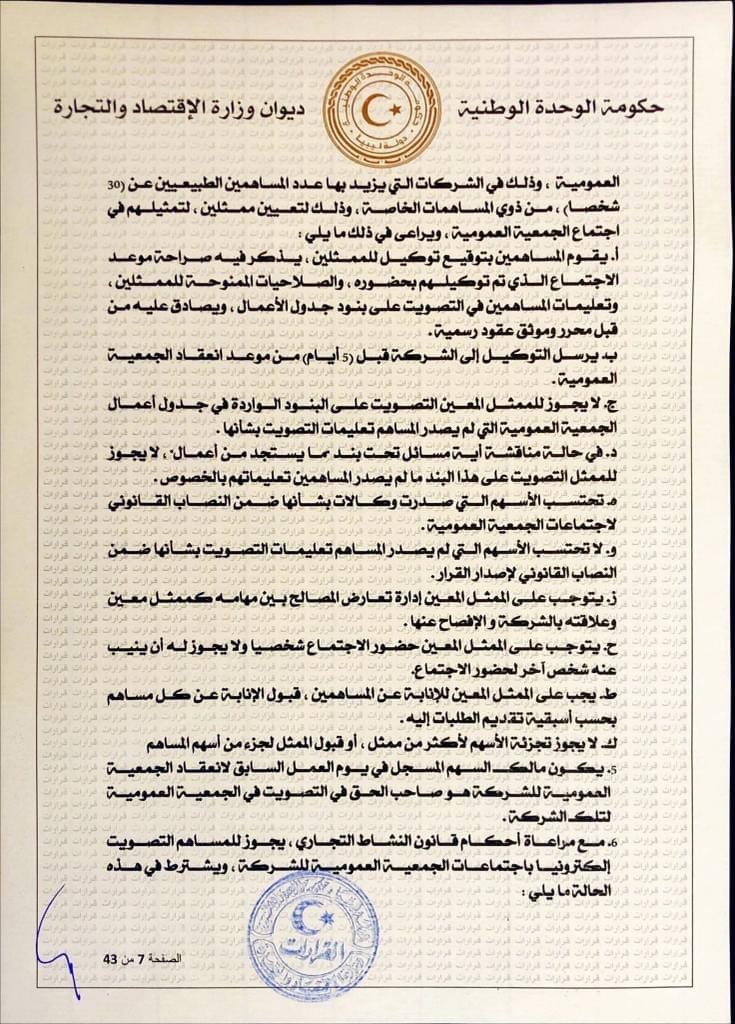 حكومة الوحدة الوطنية
ديوان وزارة الإقتصاد والتجارة
حكومة الوحدة الوطنية
دولة ليبيا
العمومية ، وذلك في الشركات التي يزيد بها عدد المساهمين الطبيعيين عن (30
شخصا) ، من ذوي المساهمات الخاصة ، وذلك لتعيين ممثلين ، لتمثيلهم في
اجتماع الجمعية العمومية ، ويراعى في ذلك ما يلي :
أ. يقوم المساهمين بتوقيع توكيل للممثلين ، يذكر فيه صراحة موعد
الاجتماع الذي تم توكيلهم بحضوره ، والصلاحيات الممنوحة للممثلين ،
وتعليمات المساهمين في التصويت على بنود جدول الأعمال ، ويصادق عليه من
قبل محرر وموثق عقود رسمية .
ب. يرسل التوكيل إلى الشركة قبل (5 أيام) من موعد انعقاد الجمعية
العمومية .
ج. لا يجوز للممثل المعين التصويت على البنود الواردة في جدول أعمال
الجمعية العمومية التي لم يصدر المساهم تعليمات التصويت بشأنها .
د. في حالة مناقشة أية مسائل تحت بند "ما يستجد من أعمال" ، لا يجوز
للممثل التصويت على هذا البند ما لم يصدر المساهمين تعليماتهم بالخصوص .
ه. تحتسب الأسهم التي صدرت وكالات بشأنها ضمن النصاب القانوني
لاجتماعات الجمعية العمومية .
و. لا تحتسب الأسهم التي لم يصدر المساهم تعليمات التصويت بشأنها ضمن
النصاب القانوني لإصدار القرار .
ز. يتوجب على الممثل المعين إدارة تعارض المصالح بين مهامه كممثل معين
وعلاقته بالشركة و الإفصاح عنها .
ح. يتوجب على الممثل المعين حضور الاجتماع شخصيا ولا يجوز له أن ينيب
عنه شخص آخر لحضور الاجتماع.
ط. يجب على الممثل المعين للإنابة عن المساهمين ، قبول الإنابة عن كل مساهم
بحسب أسبقية تقديم الطلبات إليه .
ك. لا يجوز تجزئة الأسهم لأكثر من ممثل ، أو قبول الممثل لجزء من أسهم المساهم
5. يكون مالك السهم المسجل في يوم العمل السابق لانعقاد الجمعية
العمومية للشركة هو صاحب الحق في التصويت في الجمعية العمومية
لتلك الشركة .
6. مع مراعاة أحكام قانون النشاط التجاري ، يجوز للمساهم التصويت
إلكترونيا باجتماعات الجمعية العمومية للشركة ، ويشترط في هذه
الحالة ما يلي :
القرارات
الصفحة 7 من 43